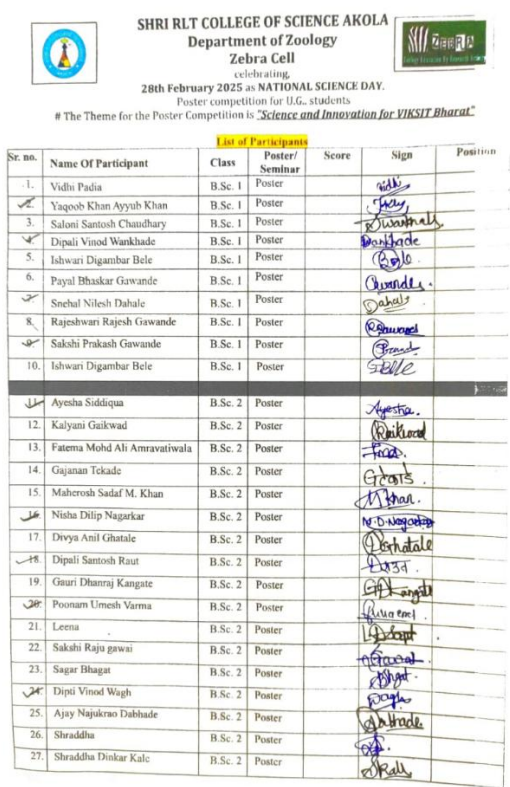 SHRI RLT COLLEGE OF SCIENCE AKOLA
Department of Zoology
Zebra Cell
celebrating,
28th February 2025 as NATIONAL SCIENCE DAY.
Poster competition for U.G.. students
# The Theme for the Poster Competition is "Science and Innovation for VIKSIT Bharat"
ZEBRA
List of Participants
Sr. no. Name Of Participant Class Poster/ Seminar Score Sign Position
1. Vidhi Padia B.Sc. 1 Poster Vidhi
2. Yaqoob Khan Ayyub Khan B.Sc. 1 Poster
3. Saloni Santosh Chaudhary B.Sc. 1 Poster
4. Dipali Vinod Wankhade B.Sc. 1 Poster Wankhade
5. Ishwari Digambar Bele B.Sc. 1 Poster Bele
6. Payal Bhaskar Gawande B.Sc. 1 Poster
7. Snehal Nilesh Dahale B.Sc. 1 Poster Dahale
8. Rajeshwari Rajesh Gawande B.Sc. 1 Poster
9. Sakshi Prakash Gawande B.Sc. 1 Poster
10. Ishwari Digambar Bele B.Sc. 1 Poster
11. Ayesha Siddiqua B.Sc. 2 Poster Ayesha.
12. Kalyani Gaikwad B.Sc. 2 Poster
13. Fatema Mohd Ali Amravatiwala B.Sc. 2 Poster
14. Gajanan Tekade B.Sc. 2 Poster
15. Maherosh Sadaf M. Khan B.Sc. 2 Poster M Khan.
16. Nisha Dilip Nagarkar B.Sc. 2 Poster N.D.Nagarkar
17. Divya Anil Ghatale B.Sc. 2 Poster DGhatale
18. Dipali Santosh Raut B.Sc. 2 Poster
19. Gauri Dhanraj Kangate B.Sc. 2 Poster GDKangate
20. Poonam Umesh Varma B.Sc. 2 Poster
21. Leena B.Sc. 2 Poster
22. Sakshi Raju gawai B.Sc. 2 Poster
23. Sagar Bhagat B.Sc. 2 Poster
24. Dipti Vinod Wagh B.Sc. 2 Poster Wagh
25. Ajay Najukrao Dabhade B.Sc. 2 Poster
26. Shraddha B.Sc. 2 Poster
27. Shraddha Dinkar Kale B.Sc. 2 Poster